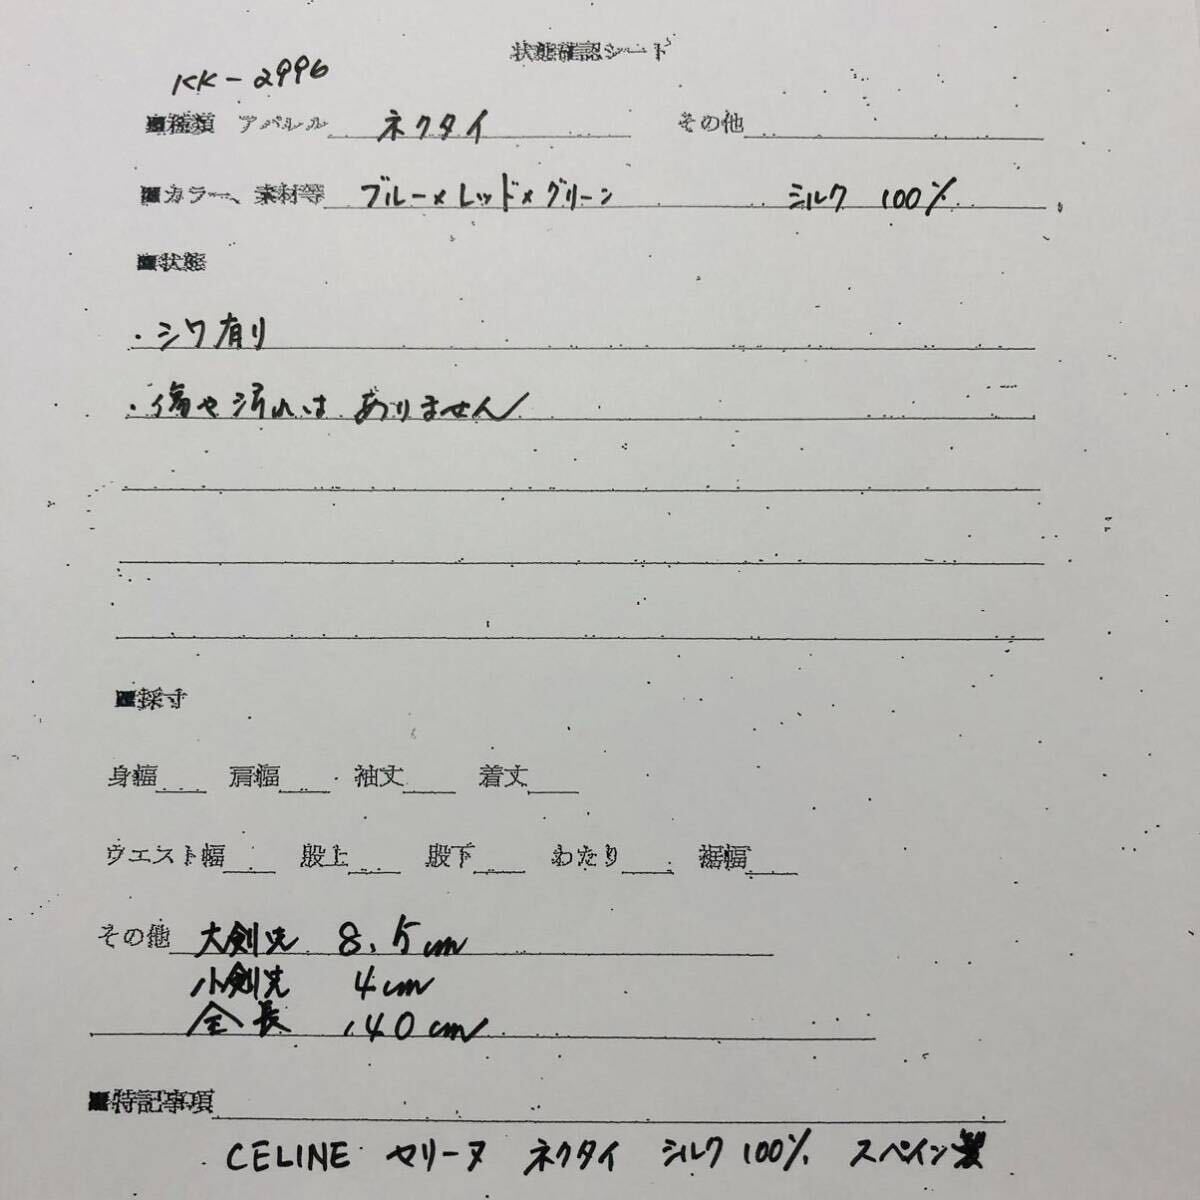 状態確認シート
KK-2996
■種類 アパレル ネクタイ その他
■カラー、素材等 ブルー×レッド×グリーン シルク 100%
■状態
・シワ有り
・傷や汚れは ありません
■採寸
身幅 肩幅 袖丈 着丈
ウエスト幅 股上 股下 わたり 裾幅
その他 大剣先 8.5cm
小剣先 4cm
全長 140cm
■特記事項
CELINE セリーヌ ネクタイ シルク 100% スペイン製